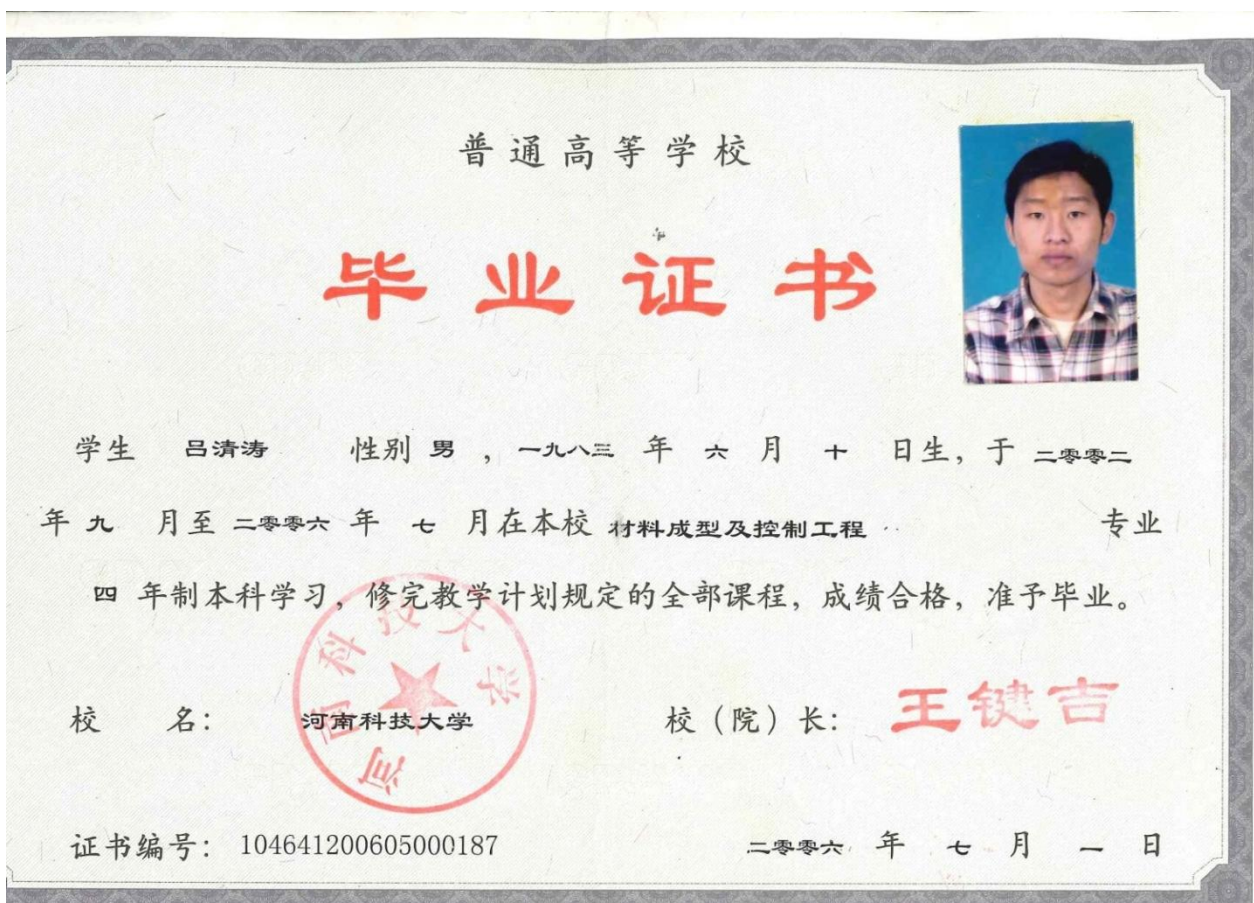 普通高等学校
毕业证书
学生 吕清涛 性别 男 ，一九八三 年 六 月 十 日生，于 二零零二
年 九 月至 二零零六 年 七 月在本校 材料成型及控制工程 专业
四 年制本科学习，修完教学计划规定的全部课程，成绩合格，准予毕业。
河南科技大学
校 名： 河南科技大学 校（院）长： 王键吉
证书编号：104641200605000187 二零零六 年 七 月 一 日